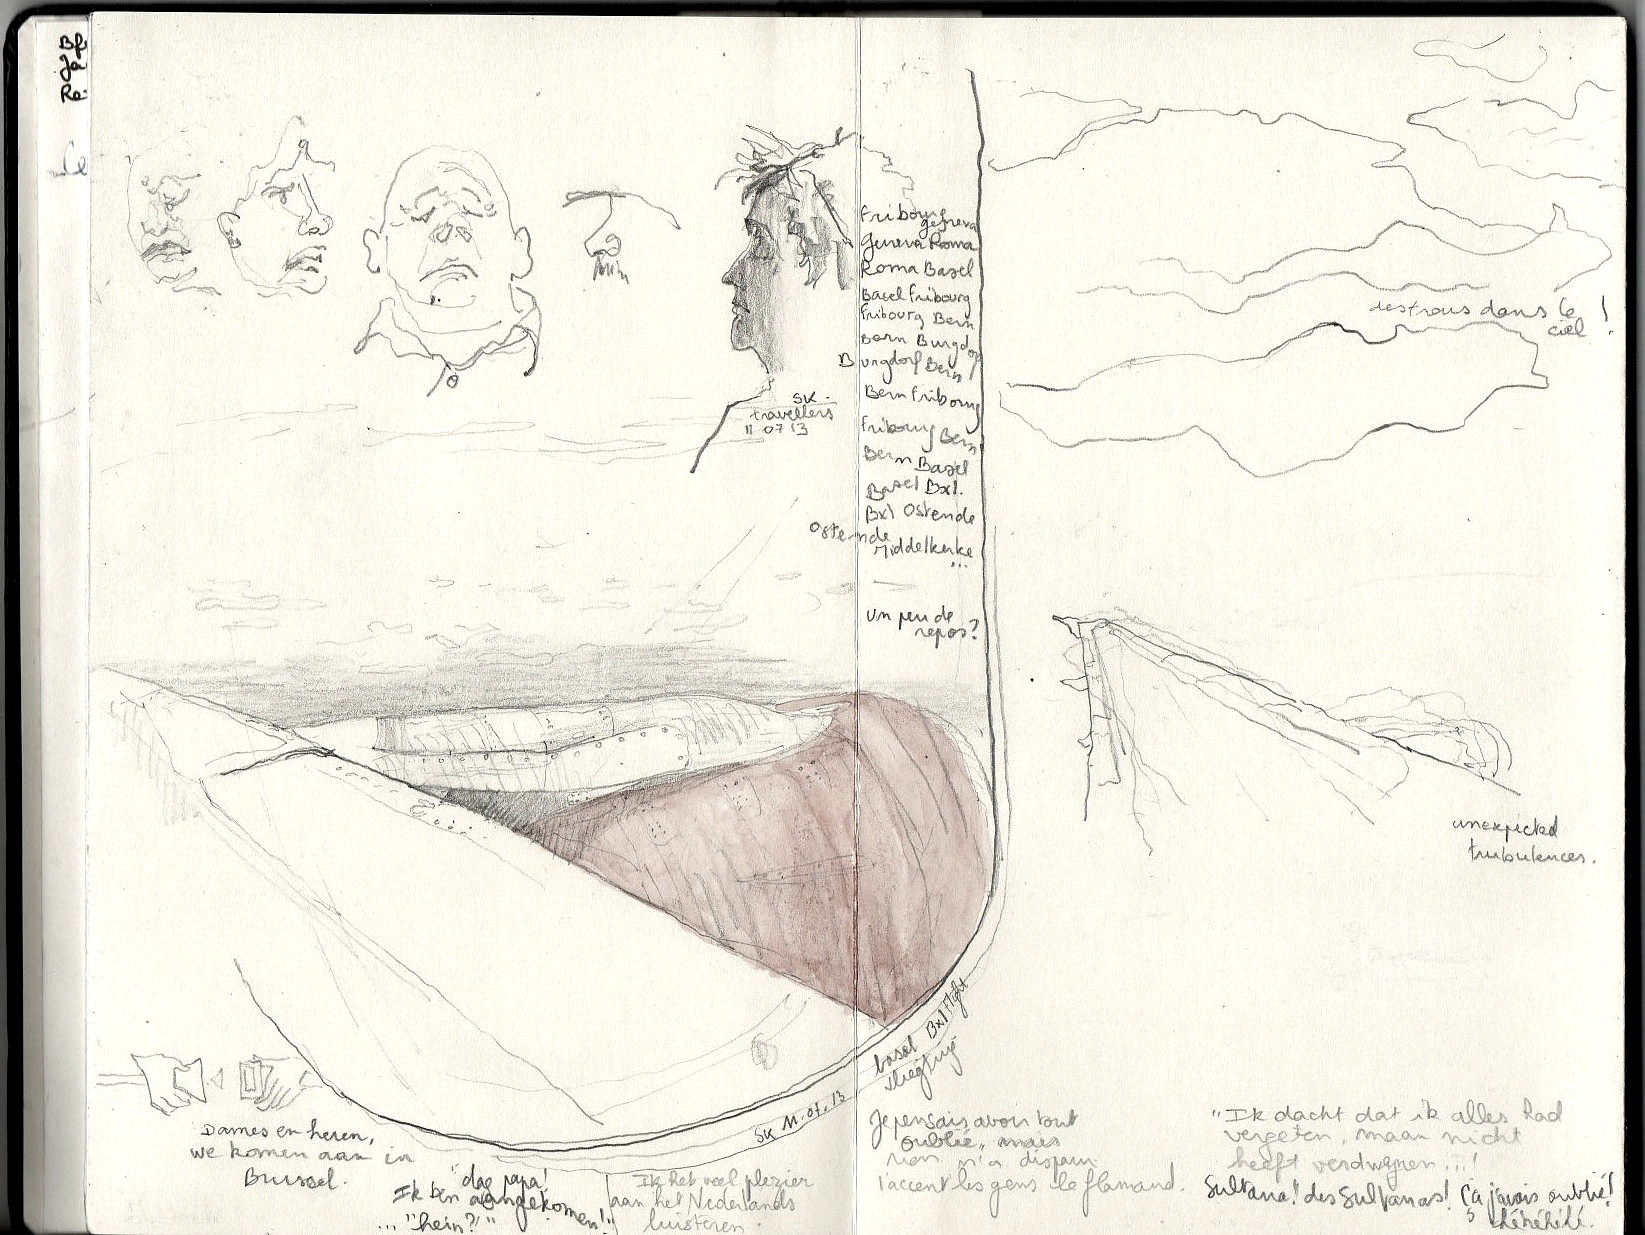 SK.
travellers
11 07 13
Fribourg
geneva
Geneva Roma
Roma Basel
Basel Fribourg
Fribourg Bern
Bern Burgdorf
Burgdorf Bern
Bern Fribourg
Fribourg Bern
Bern Basel
Basel Bxl.
Bxl Ostende
Ostende
Middelkerke
...
un peu de
repos?
des trous dans le
ciel !
unexpected
turbulences.
basel Bxl Flight
SK 11.07.13
Dames en heren,
we komen aan in
Brussel.
"dag papa!
Ik ben aangekomen!"
... "hein?"
Ik heb veel plezier
aan het Nederlands
luisteren.
Je pensais avoir tout
oublié, mais
rien n'a disparu.
l'accent les gens le flamand.
"Ik dacht dat ik alles had
vergeten, maar nicht
heeft verdwijnen...!
Sultana! des Sultanas! ça j'avais oublié!
héhéhéhé.